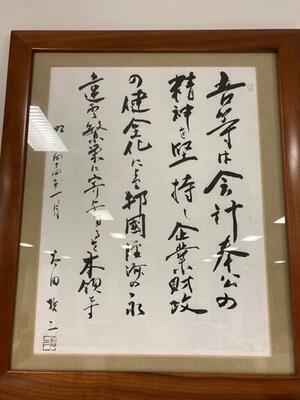 吾等は会計奉公の
精神を堅持し企業財政
の健全化による邦國経済の永
遠の繁栄に寄与するを本領とす
昭和四十四年一月 太田哲三